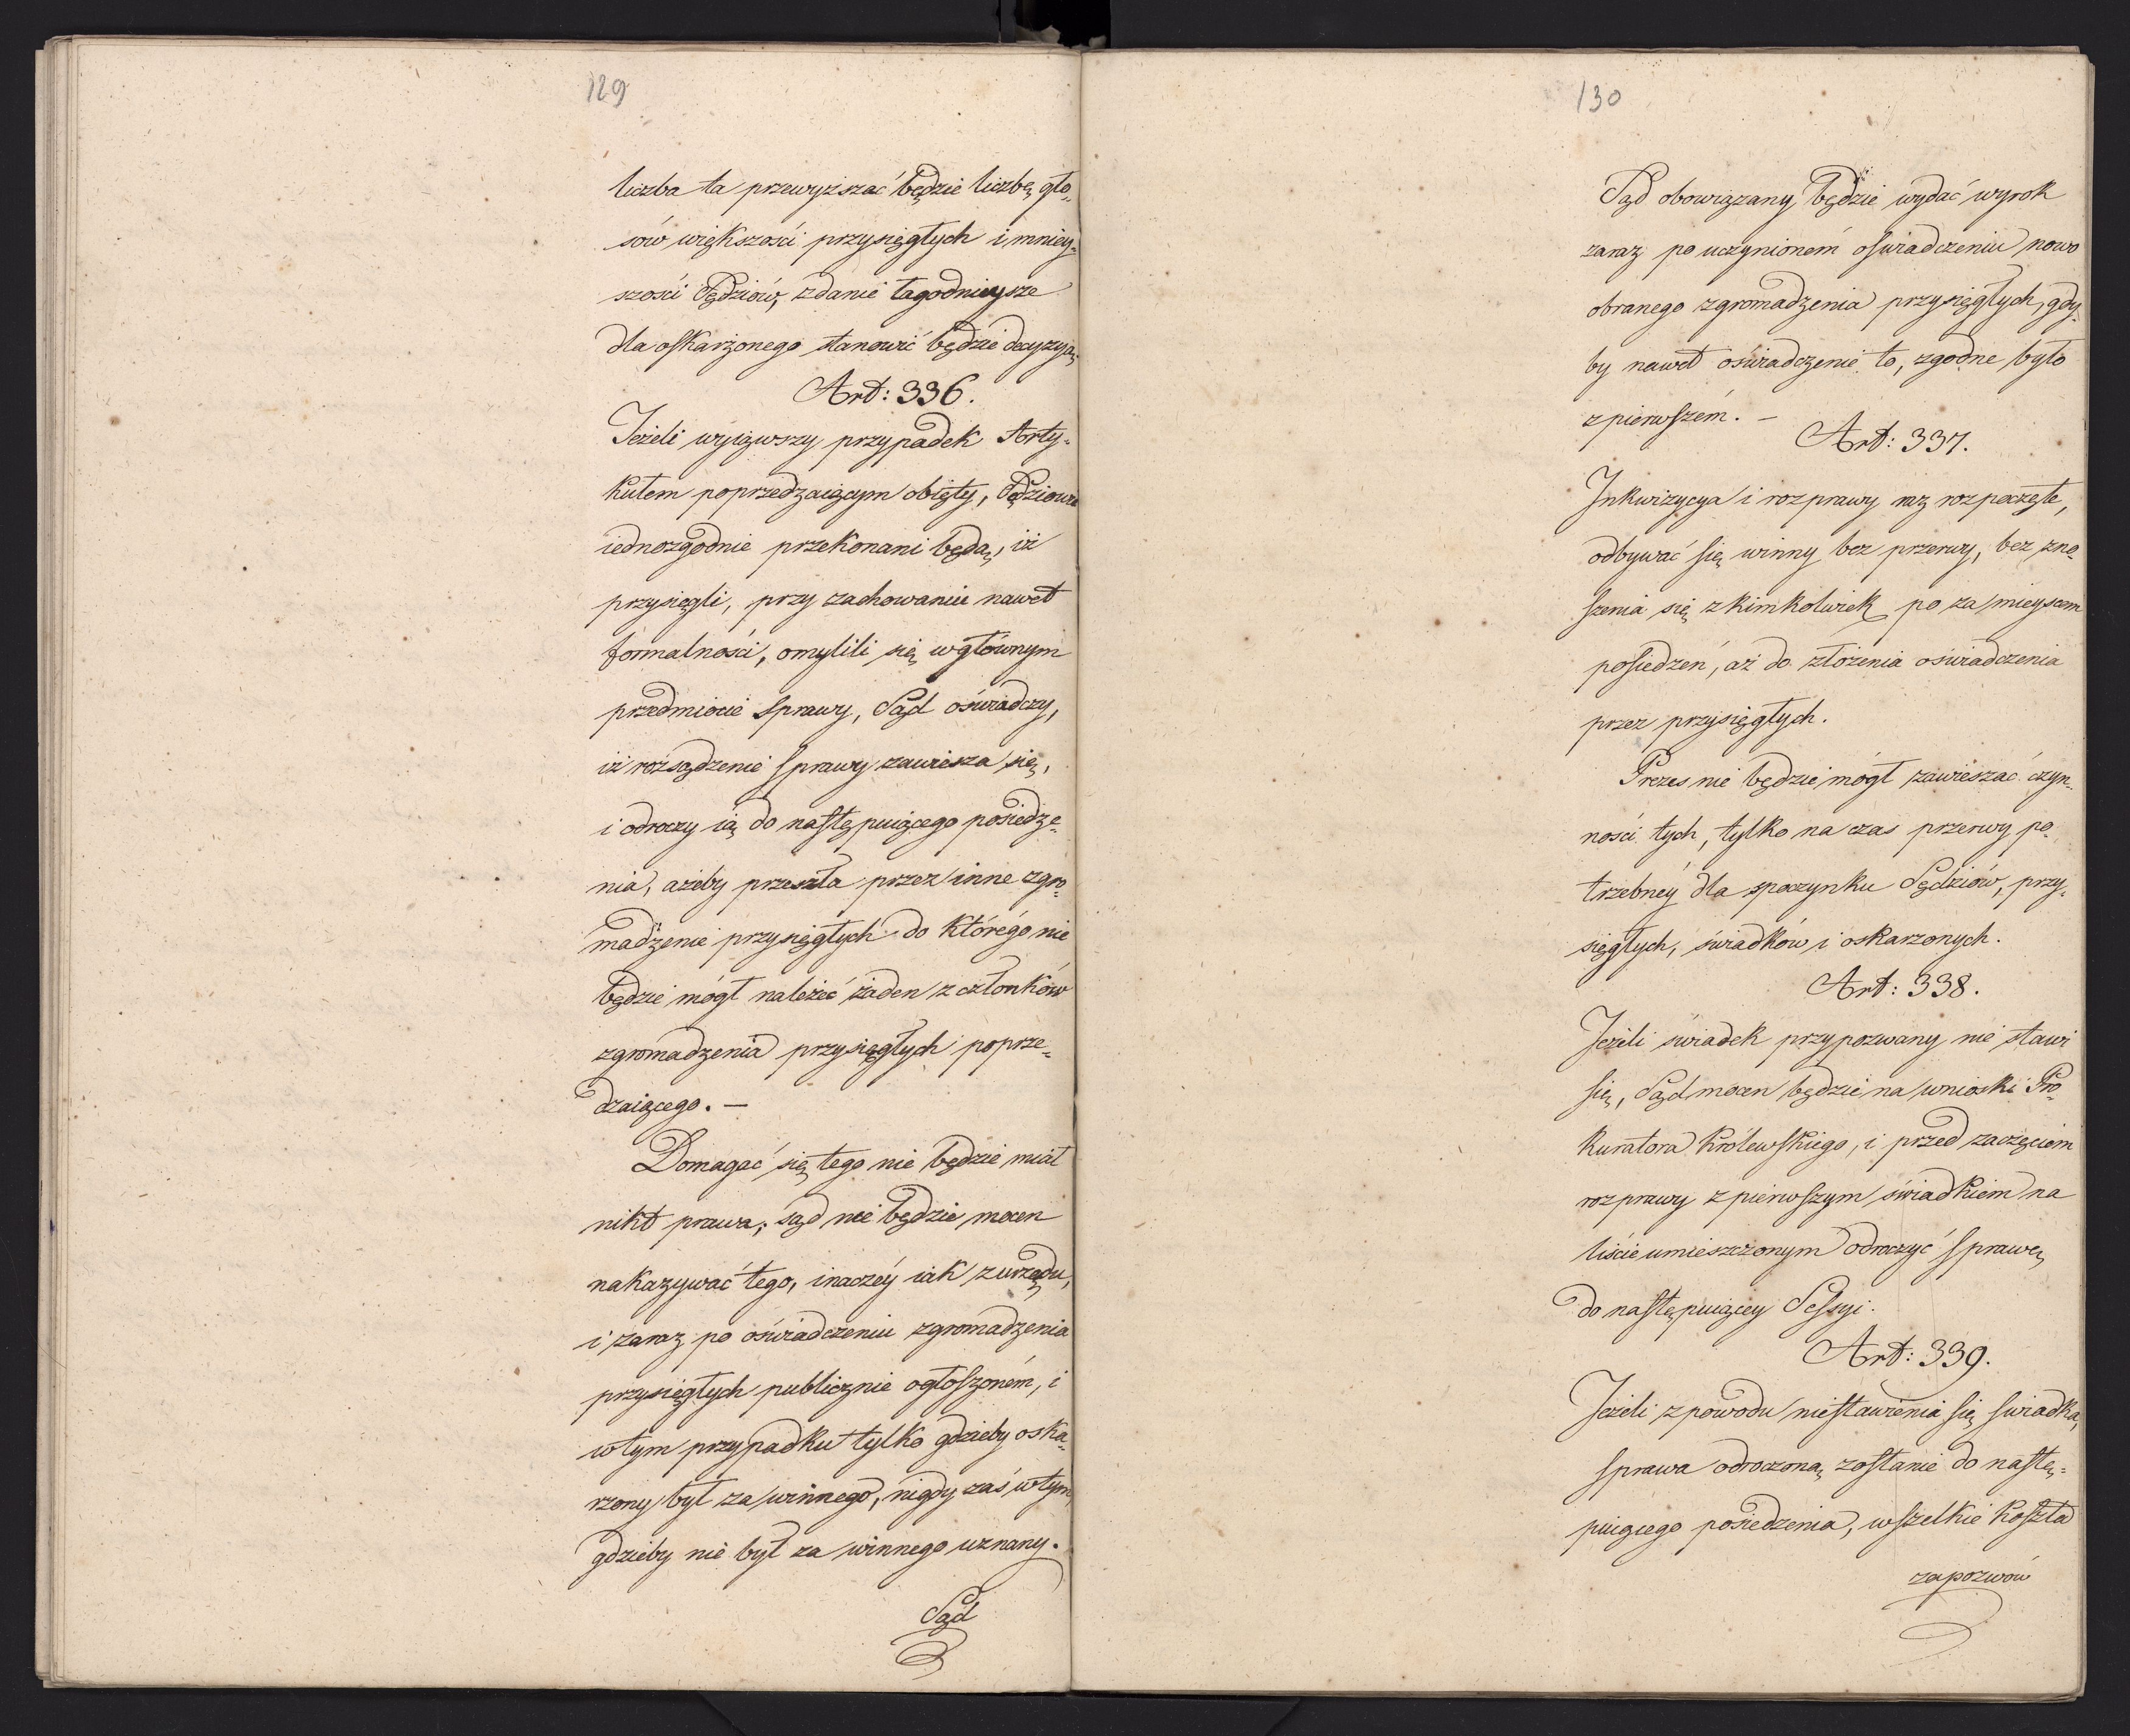 129
liczba ta przewyższać będzie liczbę gło„
sów większości przysięgłych i mniey„
szości Sędziów, zdanie łagodnieysze
dla oskarżonego stanowić będzie decyzyą,
Art: 336.
Jeżeli wyiąwszy przypadek Arty„
kułem poprzedzaiącym obięty, Sędziowie
iednozgodnie przekonani będą, iż
przysięgli, przy zachowaniu nawet
formalności, omylili się w głównym
przedmiocie sprawy, Sąd oświadczy,
iż rozsądzenie sprawy zawiesza się,
i odroczy ią do następuiącego posiedze„
nia, ażeby przeszła przez inne zgro„
madzenie przysięgłych do którégo nie
będzie mógł należeć żaden z członków
zgromadzenia przysięgłych poprze„
dzaiącego. —
Domagać się tego nie będzie miał
nikt prawa; sąd nie będzie mocen
nakazywać tego, inaczéy iak z urzędu,
i zaraz po oświadczeniu zgromadzenia
przysięgłych publicznie ogłoszoném, i
w tym przypadku tylko gdzieby oska„
rżony był za winnego, nigdy zaś w tym,
gdzieby nie był za winnego uznany.
Sąd
130
Sąd obowiązany będzie wydać wyrok
zaraz po uczynioném oświadczeniu nowo
obranego zgromadzenia przysięgłych, gdy„
by nawet oświadczenie to, zgodne było
z pierwszém. —
Art: 337.
Inkwizycya i rozprawy raz rozpoczęte,
odbywać się winny bez przerwy, bez zno
szenia się z kimkolwiek po za mieyscem
posiedzeń, aż do złożenia oświadczenia
przez przysięgłych.
Prezes nie będzie mógł zawieszać czyn„
ności tych, tylko na czas przerwy po„
trzebnéy dla spoczynku Sędziów, przy„
sięgłych, świadków i oskarzonych.
Art: 338.
Jeżeli świadek przypozwany nie stawi
się, Sąd mocen będzie na wnioski Pro„
kuratora Królewskiego, i przed zaczęciem
rozprawy z pierwszym świadkiem na
liście umieszczonym odroczyć sprawę
do następuiącey Sessyi.
Art: 339.
Jeżeli z powodu niestawienia się świadka,
sprawa odroczoną zostanie do nastę„
puiącego posiedzenia, wszelkie koszta
zapozwów